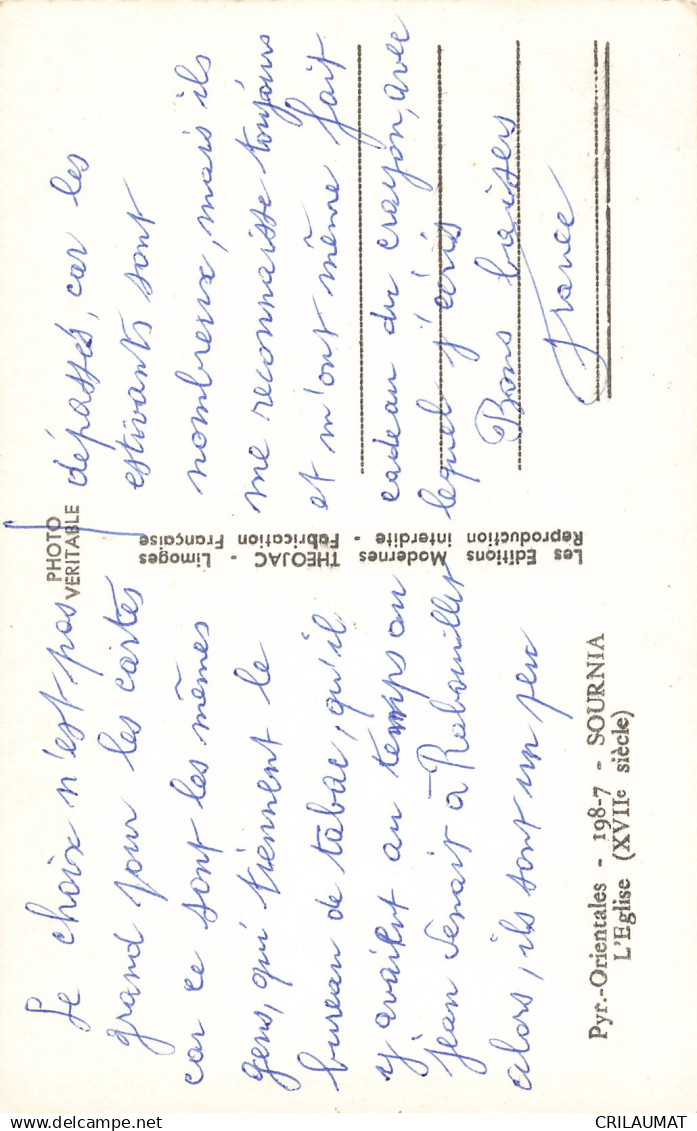 Le choix n'est pas
grand pour les cartes
car ce sont les mêmes
gens, qui tiennent le
bureau de tabac, qu'il
y avait au temps ou
jean venait à Rabouillet
alors, ils sont un peu
dépassés, car les
estivants sont
nombreux, mais ils
me reconnaisse toujours
et m'ont même fait
cadeau du crayon, avec
lequel j'écris
Bons baisers
France
PHOTO
VERITABLE
Les Editions Modernes THEOJAC - Limoges
Reproduction interdite - Fabrication Française
Pyr.-Orientales - 198-7 - SOURNIA
L'Eglise (XVIIe siècle)
CRILAUMAT